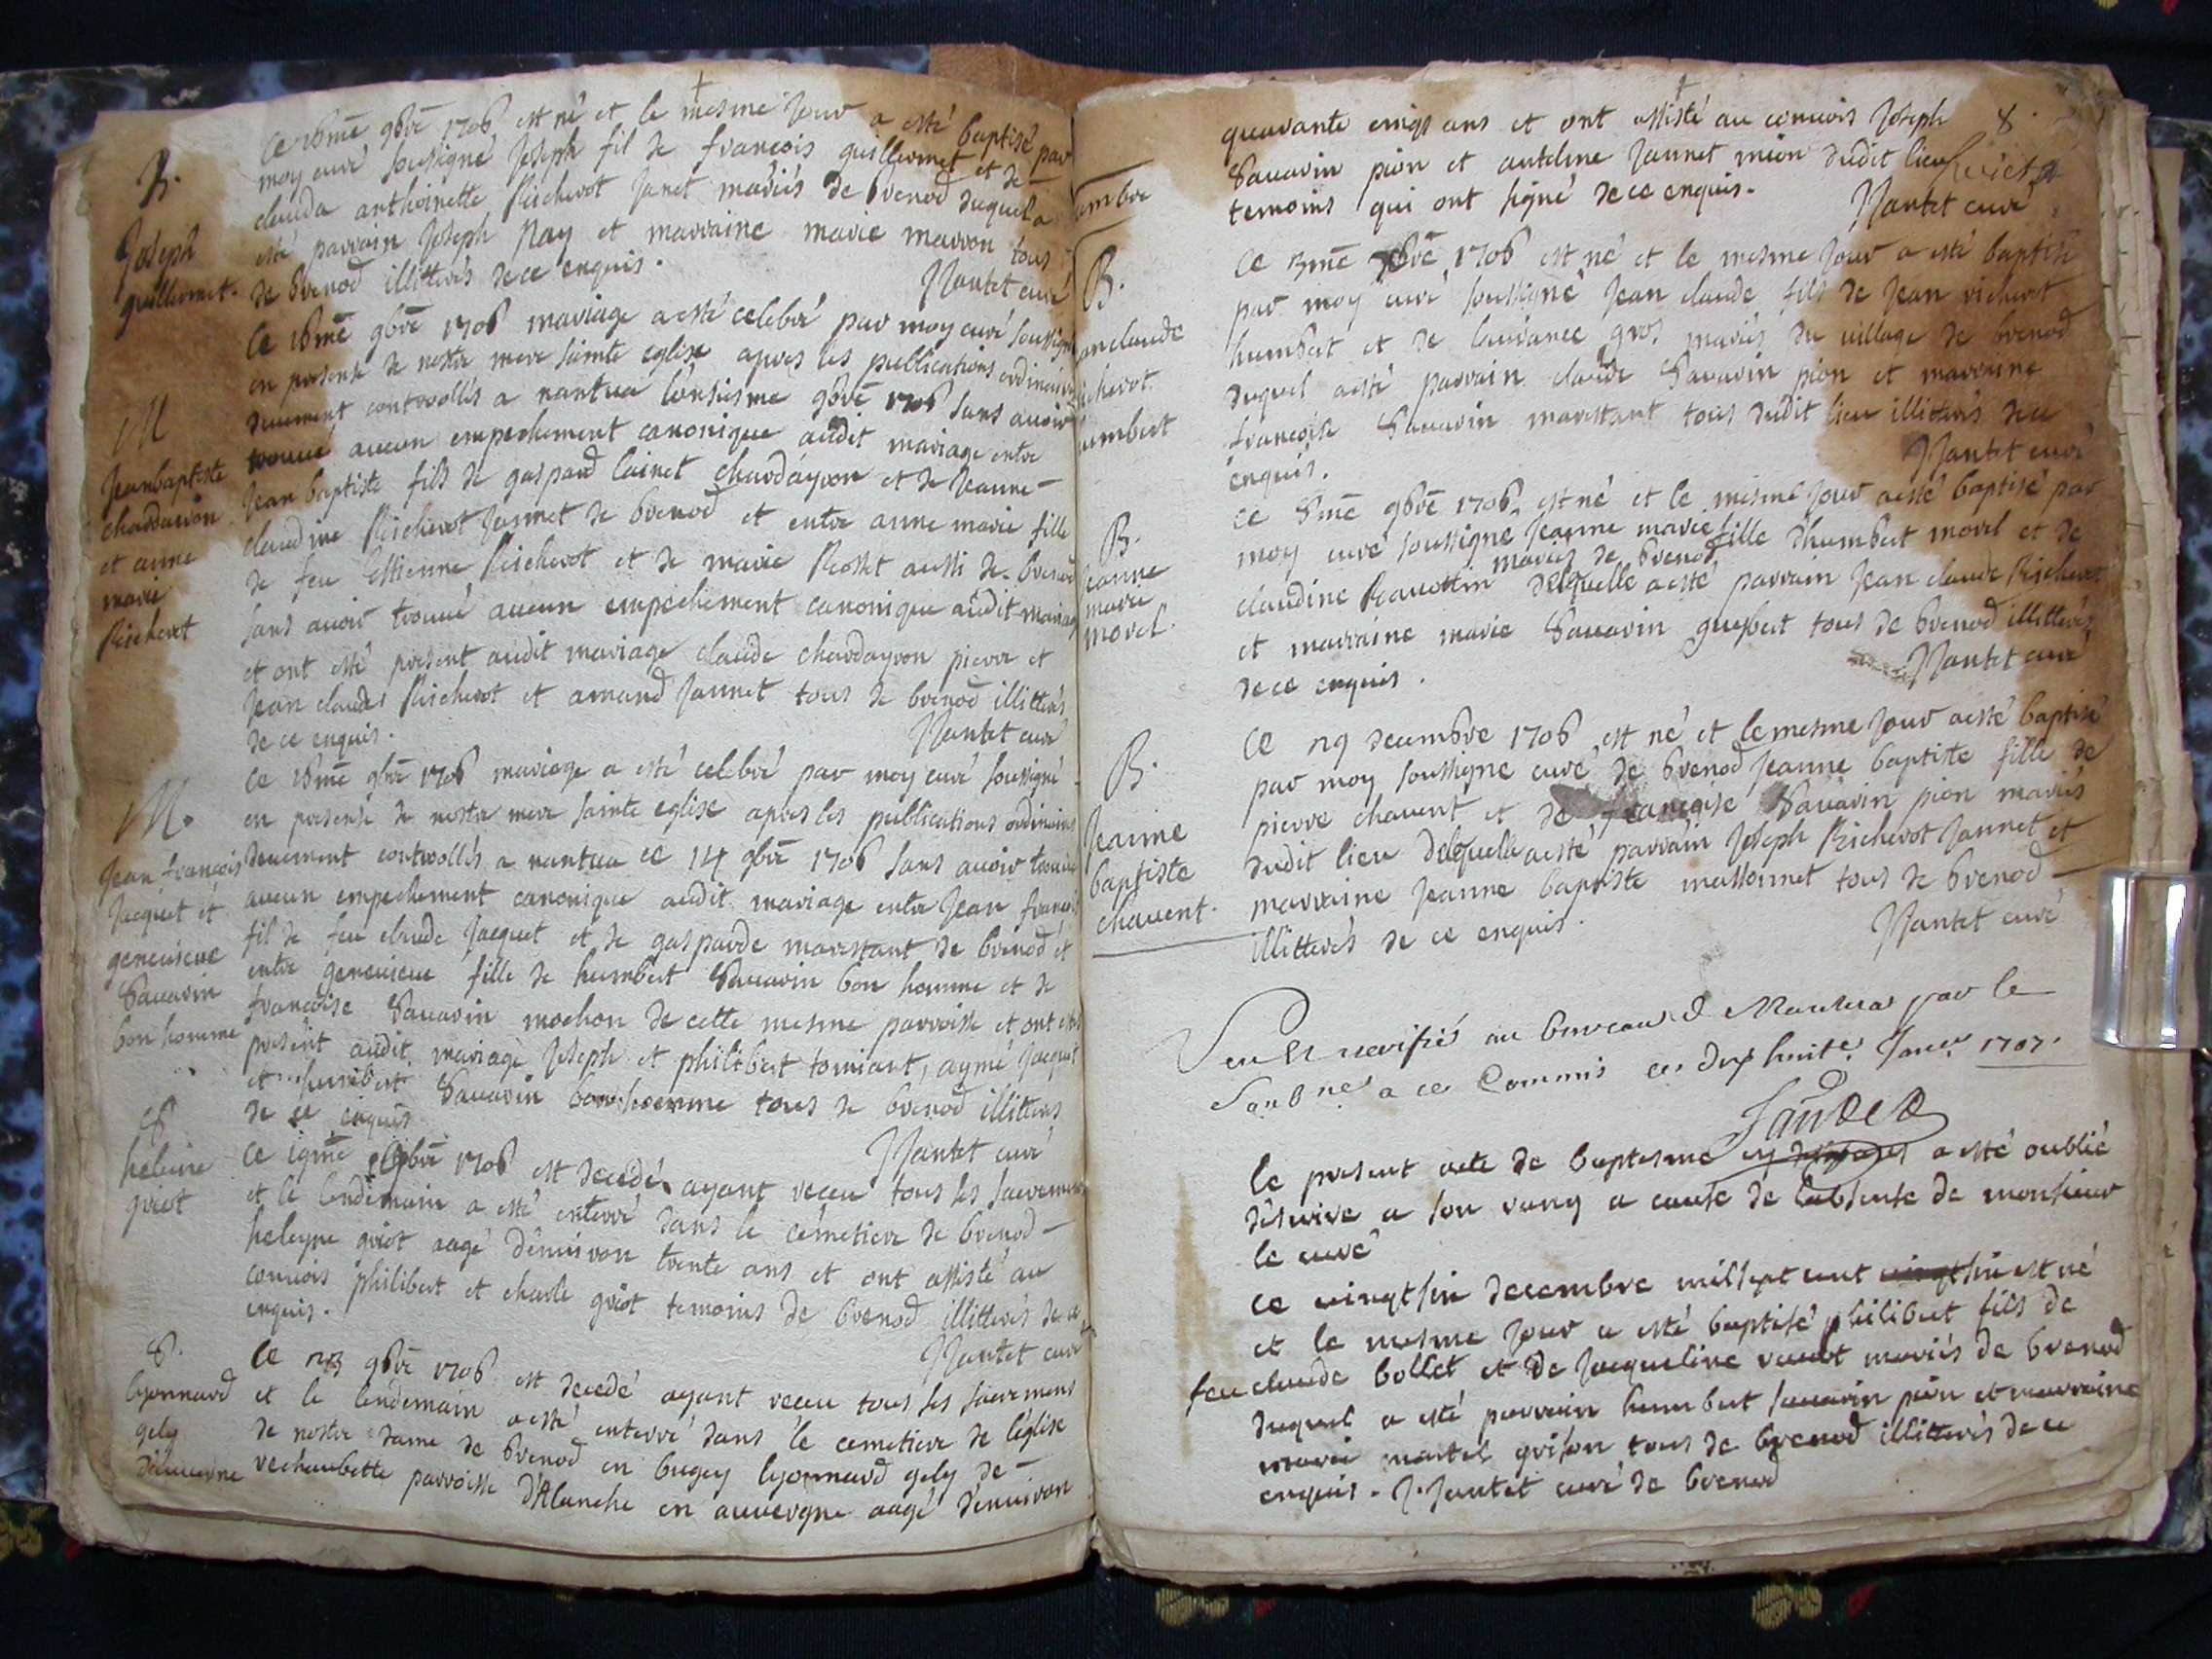 B.
Joseph
guillermet.
moy curé soussigné Joseph fil de francois guillermet et de
clauda anthoinette Richerot Janet mariés de brenod duquel a
esté parrain Joseph Ray et marraine marie marron tous
de brenod illitterés de ce enquis.
Jantet curé
M
Jean baptiste
chardaÿron
et anne
marie
Richerot
ce 18me 9bre 1706 mariage a esté celebré par moy curé soussigné
en presense de nostre mere sainte eglise apres les publications ordinaires
deuement controollés a nantua 9bre 1706 sans avoir
trouué aucun empechement canonique audit mariage entre
Jean baptiste fils de gaspard lainet chardaÿron et de Jeanne
claudine Richerot Jannet de brenod et entre anne marie fille
de feu Estienne Richerot et de marie Rosset aussi de brenod
sans avoir trouué aucun empechement canonique audit mariage
et ont esté present audit mariage claude chardayron pierre et
Jean claude Richerot et amand Jannet tous de brenod illitterés
de ce enquis.
Jantet curé
M.
Jean francois
Jacquet et
geneuieue
Sauarin
bon homme
ce 18me 9bre 1706 mariage a esté celebré par moy curé soussigné
en presense de nostre mere sainte eglise apres les publications ordinaires
deuement controollés a nantua ce 14 9bre 1706 sans auoir trouué
aucun empechement canonique audit mariage entre Jean francois
fil de feu claude Jacquet et de gasparde marestant de brenod et
entre geneuieue fille de humbert Sauarin bon homme et de
francoise Sauarin mochon de cette mesme parroisse et ont estés
present audit mariage Joseph et philibert tomiant, aymé Jacquet
et humbert Sauarin bonhomme tous de brenod illitterés
de ce enquis
Jantet curé
S
heleine
griot
ce 19me 9bre 1706 est decedé ayant receu tous les sacremens
et le lendemain a esté enterré dans le cemetiere de brenod
heleyne griot aagé denuiron trente ans et ont assisté au
conuois philibert et charle griot temoins de brenod illitterés de ce
enquis.
Jantet curé
S.
lyonnard
gely
d'auuergne
9bre 1706 est decedé ayant receu tous ses sacremens
et le lendemain a esté enterré dans le cemetiere de l'église
de nostre dame de brenod en bugey lyonnard gely de
vechaubette parroisse d'Alanche en auuergne aagé denuiron
8.
quarante cinqs ans et ont assisté au conuois Joseph
Sauarin pion et antelme Jannet mion dudit lieu
temoins qui ont signé de ce enquis.
Jantet curé
B.
1706 est né et le mesme jour a esté baptisé
par moy curé soussigné Jean claude fils de Jean richerot
humbert et de laurance gros mariés du village de brenod
duquel a esté parrain claude Sauarin pion et marraine
francoise Sauarin marestant tous dudit lieu illitterés de ce
enquis.
Jantet curé
B.
Jeanne
marie
morel.
ce 8me 9bre 1706 est né et le mesme jour a esté baptisé par
moy curé soussigne Jeanne marie fille dhumbert morel et de
mariés de brenod
claudine delquelle a esté parrain Jean claude Richerot
et marraine marie Sauarin guybert tous de brenod illitterés
de ce enquis.
Jantet curé
B.
Jeanne
baptiste
chauent.
ce decembre 1706 est né et le mesme jour a esté baptisé
par moy soussigne curé de brenod Jeanne baptiste fille de
pierre chauent et de francoise Sauarin pion mariés
dudit lieu delquela a esté parrain Joseph Richerot Jannet et
marraine Jeanne baptiste massonnet tous de brenod
illitterés de ce enquis.
Jantet curé
Veu et verifié au bureau de Nantua par le
Soubné a ce Commis ce dix huite Janer 1707.
le present acte de baptesme a esté oublié
désrire a son rang a cause de l'absense de monsieur
le curé
ce vingt sin decembre mil sept cent sin est né
et le mesme jour a esté baptisé philibert fils de
feu claude bollet et de Jacqueline mariés de brenod
duquel a esté parrain humbert sauarin pion et marraine
marie martel grison tous de brenod illitterés de ce
enquis. J. Jantet curé de brenod